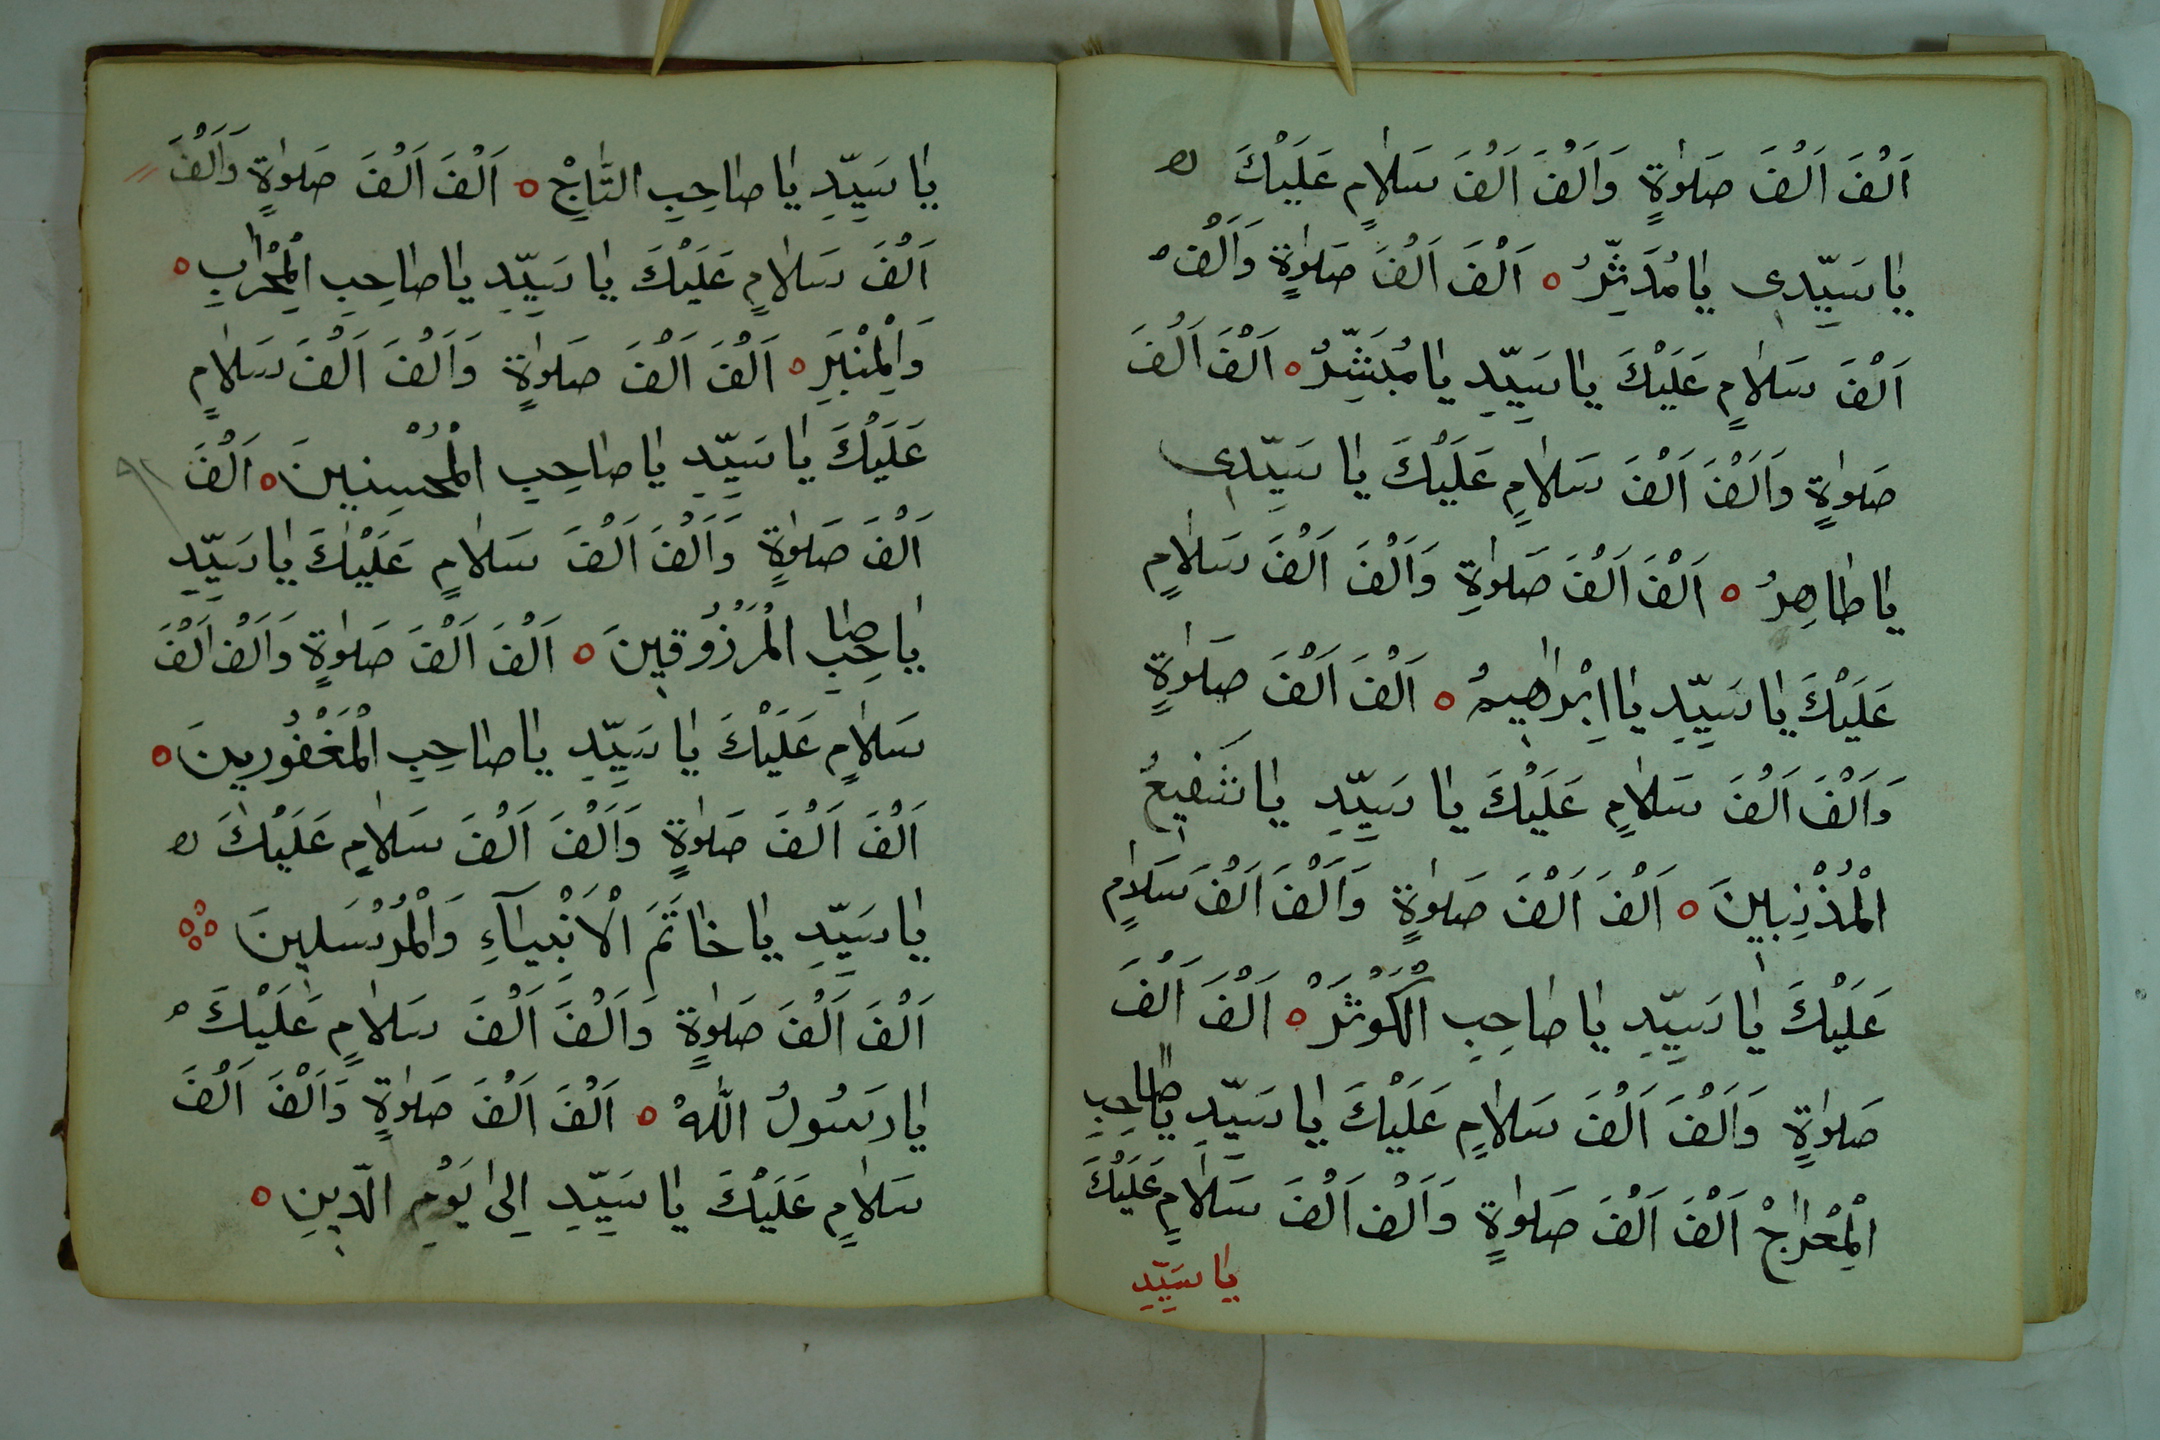 اَلْفَ اَلْفَ صَلٰوةٍ وَاَلْفَ اَلْفَ سَلٰامٍ عَلَيْكَ
يٰا سَيِّدِى يٰا مُدَثِّرُ ه اَلْفَ اَلْفَ صَلٰوةٍ وَاَلْفَ
اَلْفَ سَلٰامٍ عَلَيْكَ يٰا سَيِّدِ يٰا مُبَشِّرُ ه اَلْفَ اَلْفَ
صَلٰوةٍ وَاَلْفَ اَلْفَ سَلٰامٍ عَلَيْكَ يٰا سَيِّدِى
يٰا طٰاهِرُ ه اَلْفَ اَلْفَ صَلٰوةِ وَاَلْفَ اَلْفَ سَلٰامٍ
عَلَيْكَ يٰا سَيِّدِ يٰا اِبْرٰاهِيمُ ه اَلْفَ اَلْفَ صَلٰوةٍ
وَاَلْفَ اَلْفَ سَلٰامٍ عَلَيْكَ يٰا سَيِّدِ يٰا شَفِيعُ
الْمُذْنِبِينَ ه اَلْفَ اَلْفَ صَلٰوةٍ وَاَلْفَ اَلْفَ سَلٰامٍ
عَلَيْكَ يٰا سَيِّدِ يٰا صٰاحِبِ الْكَوْثَرْ ه اَلْفَ اَلْفَ
صَلٰوةٍ وَاَلْفَ اَلْفَ سَلٰامٍ عَلَيْكَ يٰا سَيِّدِ يٰا صٰاحِبِ
الْمِعْرٰاجْ اَلْفَ اَلْفَ صَلٰوةٍ وَاَلْفَ اَلْفَ سَلٰامٍ عَلَيْكَ
يٰا سَيِّدِ
يٰا سَيِّدِ يٰا صٰاحِبِ التَّاجْ ه اَلْفَ اَلْفَ صَلٰوةٍ وَاَلْفَ
اَلْفَ سَلٰامٍ عَلَيْكَ يٰا سَيِّدِ يٰا صٰاحِبِ الْمِحْرٰابِ ه
وَالْمِنْبَرِ ه اَلْفَ اَلْفَ صَلٰوةٍ وَاَلْفَ اَلْفَ سَلٰامٍ
عَلَيْكَ يٰا سَيِّدِ يٰا صٰاحِبِ الْمُحْسِنِينَ ه اَلْفَ
اَلْفَ صَلٰوةٍ وَاَلْفَ اَلْفَ سَلٰامٍ عَلَيْكَ يٰا سَيِّدِ
يٰا صٰاحِبِ الْمَرْزُوقِينَ ه اَلْفَ اَلْفَ صَلٰوةٍ وَاَلْفَ اَلْفَ
سَلٰامٍ عَلَيْكَ يٰا سَيِّدِ يٰا صٰاحِبِ الْمَغْفُورِينَ ه
اَلْفَ اَلْفَ صَلٰوةٍ وَاَلْفَ اَلْفَ سَلٰامٍ عَلَيْكَ
يٰا سَيِّدِ يٰا خٰاتَمَ الْاَنْبِيَآءِ وَالْمُرْسَلِينَ
اَلْفَ اَلْفَ صَلٰوةٍ وَاَلْفَ اَلْفَ سَلٰامٍ عَلَيْكَ
يٰا رَسُولُ اللّٰهْ ه اَلْفَ اَلْفَ صَلٰوةٍ وَاَلْفَ اَلْفَ
سَلٰامٍ عَلَيْكَ يٰا سَيِّدِ اِلٰى يَوْمِ الدّينِ ه